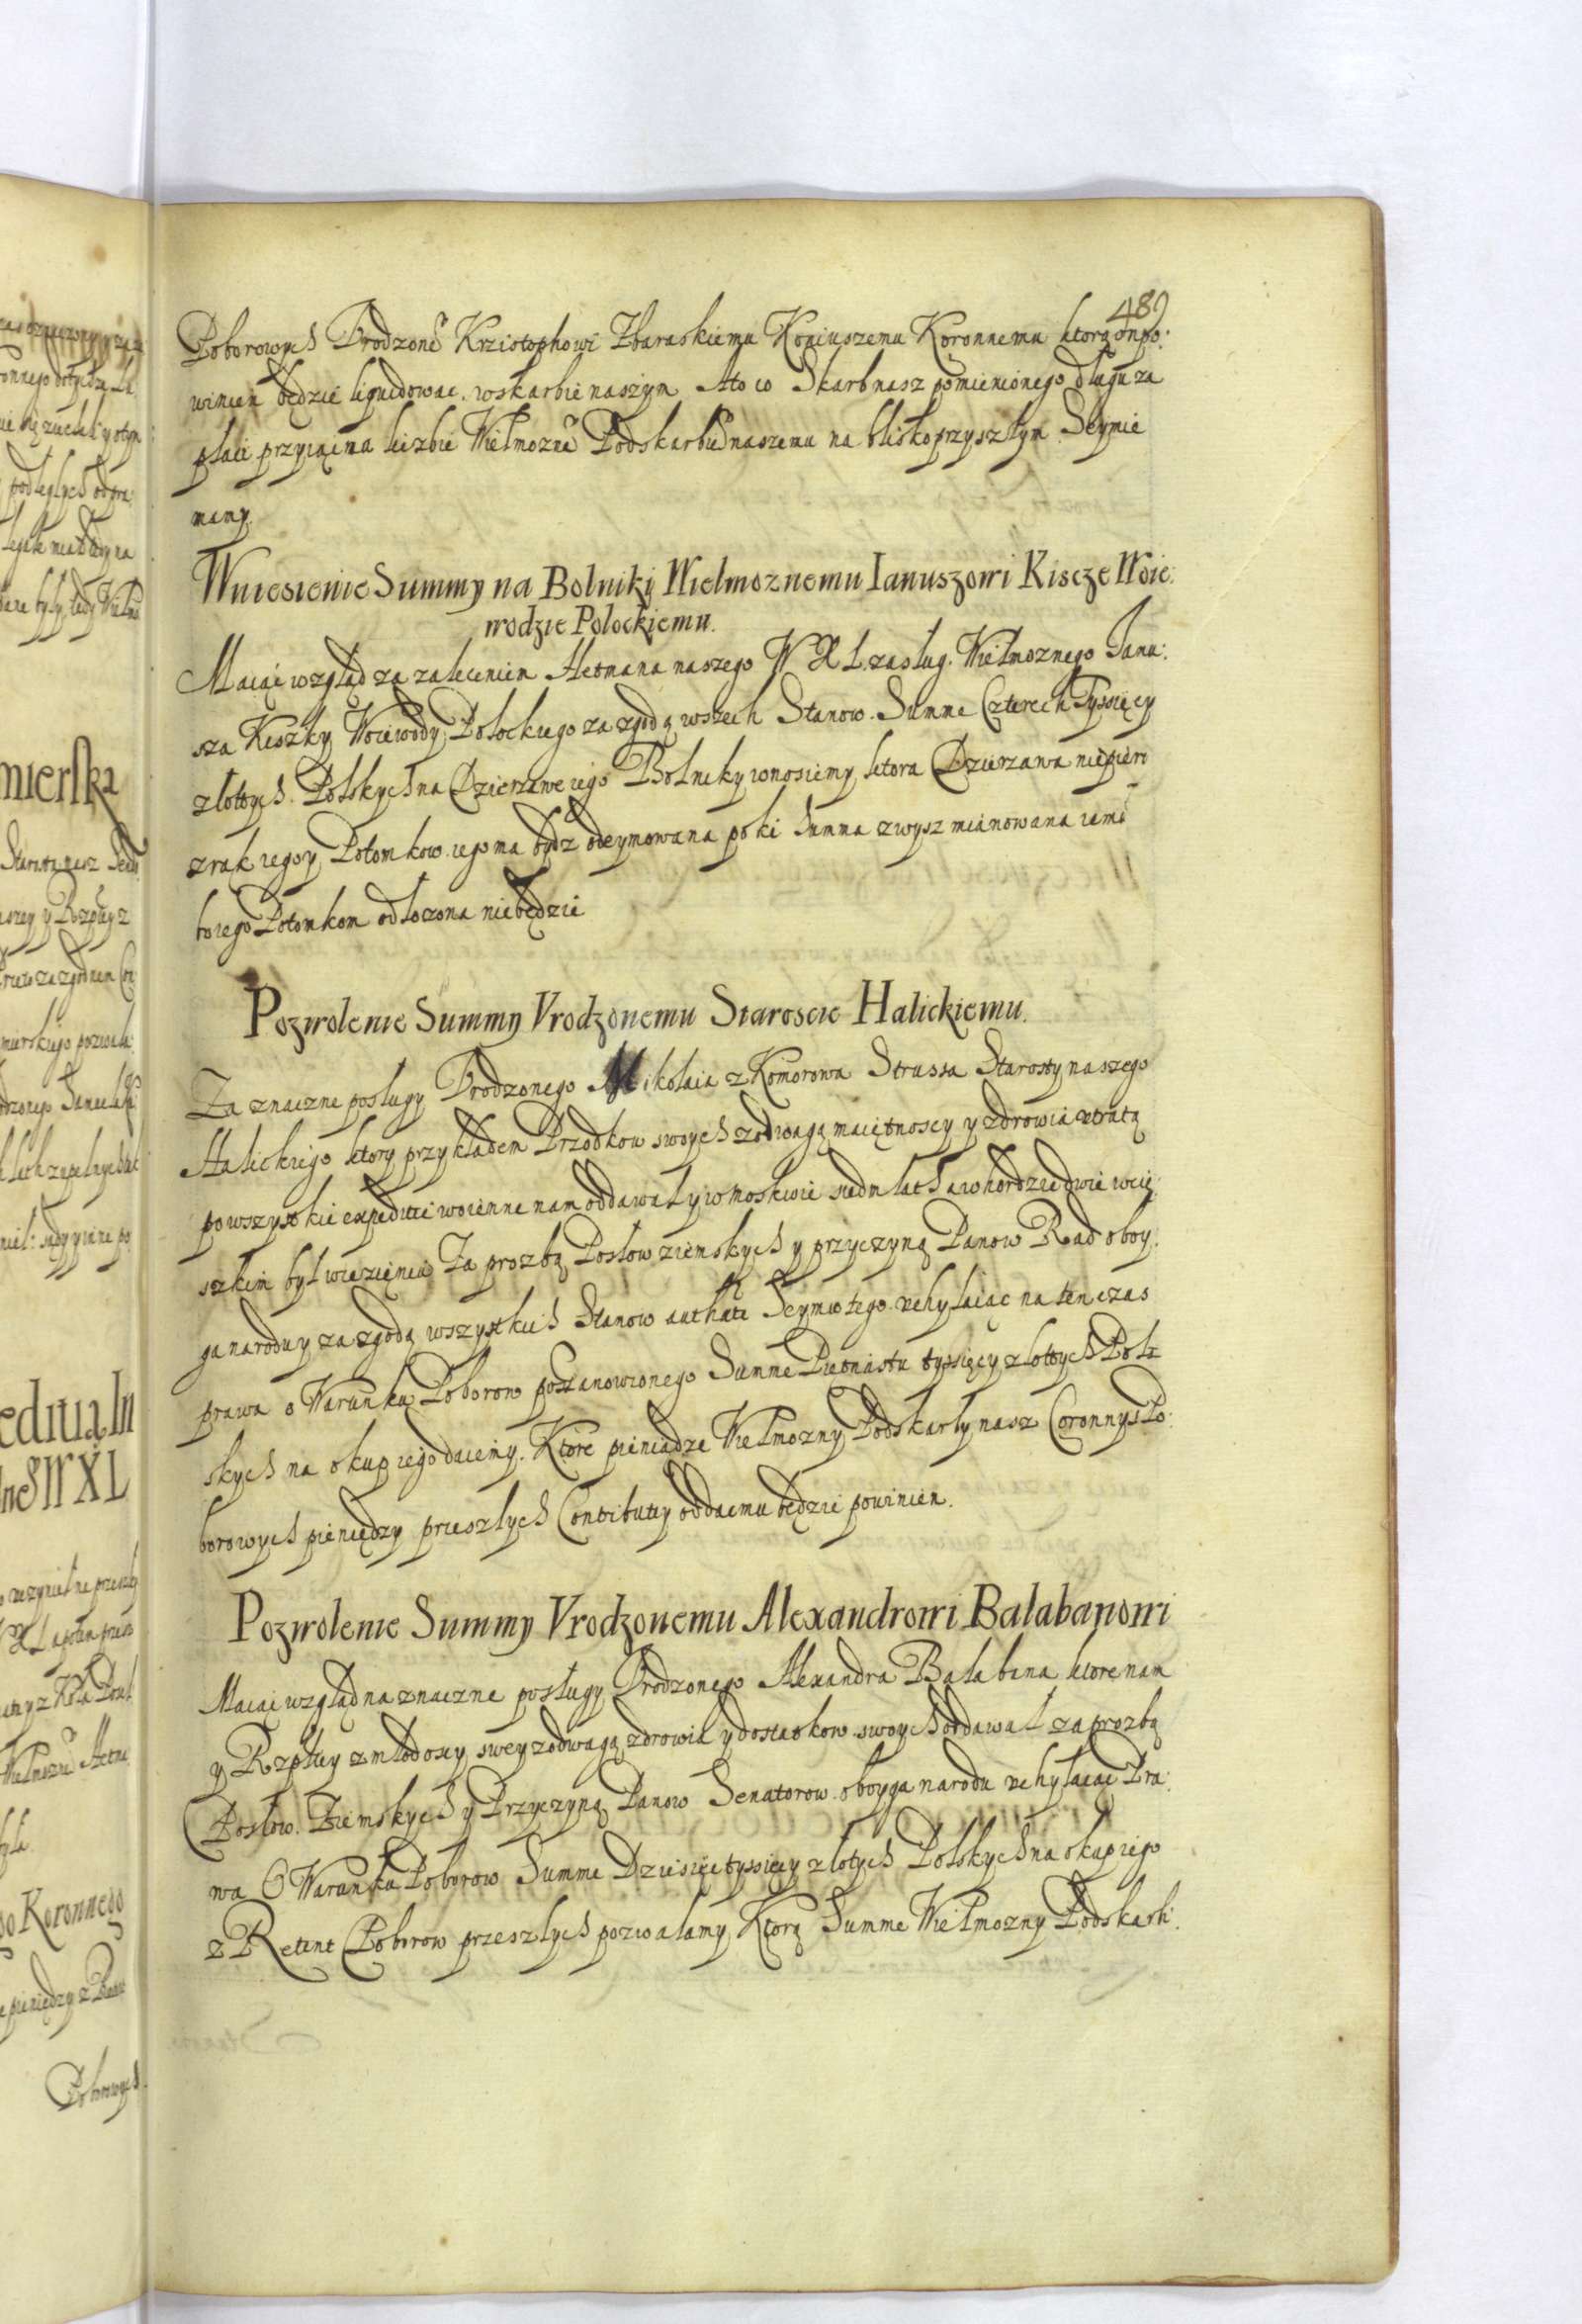 489
Poborowych Urodzonē Krzistophowi Zbaraskiemu Koniuszemu Koronnemu ktorą on po:
winien będzie liquidowac w skarbie naszym. A to co Skarb nasz pomienionego długu za
płaci przyiąc na liczbie Wielmoznē Podskarbiē naszemu na blisko przyszłym Seymie
mamy.
Wniesienie Summy na Bolniki Wielmoznemu Ianuszowi Kiscze Woie:
wodzie Polockiemu.
Maiąc wzgląd za zaleceniem Hetmana naszego W X L zasług Wielmoznego Janu:
sza Kiszky Woiewody Polockiego za zgodą wszech Stanow. Summe Czterech Tyssięcy
złotych Polskych na Dzierzawe iego Bolniky wnosiemy ktora Dzierzawa niepierw
z rąk iego y Potomkow iego ma bydz odeymowana poki Summa zwysz mianowana iemu
bo iego Potomkom odłozona niebędzie
Pozwolenie Summy Vrodzonemu Staroscie Halickiemu.
Za znaczne posługy Urodzonego Mikołaia z Komorowa Strussa Starosty naszego
Halickiego ktory przykładem Przodkow swoych z odwagą maiętnoscy y zdrowia utratą
po wszystkie expeditie woienne nam oddawał y w Moskwie siedm lath a w hordzie dwie w cię
szkim był wiezieniu Za prozbą Posłow ziemskych y przyczyną Panow Rad oboy:
ga narodu y za zgodą wszystkich Stanow authāte Seymu tego uchylaiąc na ten czas
prawa o Warunku Poborow postanowionego Summe Pietnastu tysięcy złotych Pols
skych na okup iego daiemy. Ktore pieniądze Wielmozny Podskarby nasz Coronny s Po:
borowych pieniędzy przeszłych Contributiy oddac mu będzie powinien.
Pozwolenie Summy Vrodzonemu Alexandrowi Bałabanowi
Maiąc wzgląd na znaczne posługy Urodzonego Alexandra Bałabana ktore nam
y Rzpltey z młodoscy swey z odwagą zdrowia y dostatkow swoych oddawał za prozbą
Posłow Ziemskych y Przyczyną Panow Senatorow oboyga narodu uchylaiąc Pra:
wa O Warunku Poborow Summe Dziesięc tyssięcy złotych Polskych na okup iego
z Retent Poborow przeszłych pozwalamy. Ktorą Summe Wielmozny Podskarbi.